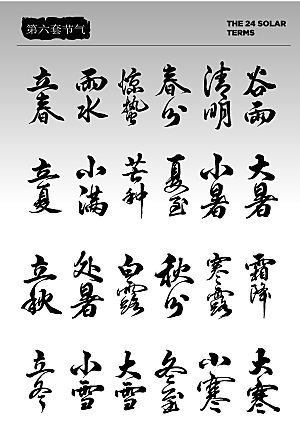 第六套节气
THE 24 SOLAR
TERMS
立春 雨水 惊蛰 春分 清明 谷雨
立夏 小满 芒种 夏至 小暑 大暑
立秋 处暑 白露 秋分 寒露 霜降
立冬 小雪 大雪 冬至 小寒 大寒